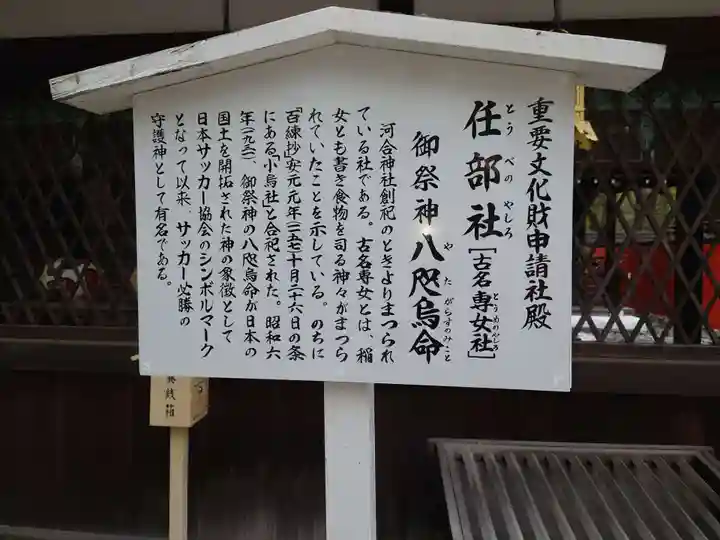 重要文化財申請社殿
任部社[古名 専女社]
とうべのやしろ
とうめのやしろ
御祭神 八咫烏命
やたがらすのみこと
河合神社創祀のときよりまつられ
ている社である。古名専女とは、稲
女とも書き食物を司る神々がまつら
れていたことを示している。のちに
「百練抄」安元元年(一一七五)十月二十六日の条
にある「小烏社と合祀された。昭和六
年(一九三一)、御祭神の八咫烏命が日本の
国土を開拓された神の象徴として
日本サッカー協会のシンボルマーク
となって以来、サッカー必勝の
守護神として有名である。
銭箱